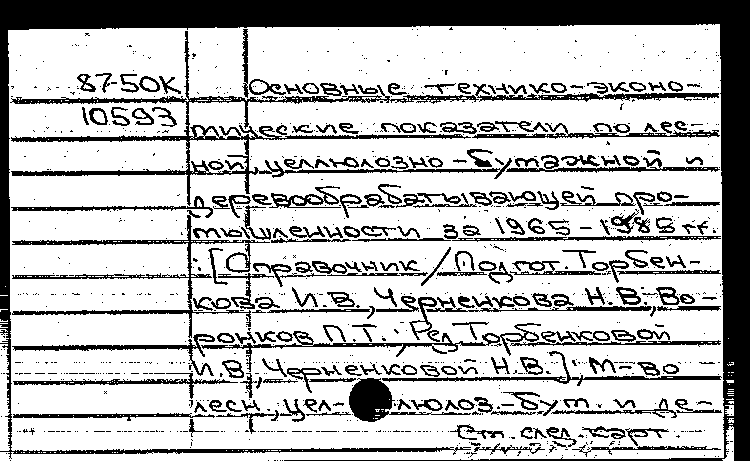 87-50К Основные технико-эконо-
10593 мические показатели по лес-
ной, целлюлозно-бумажной и
деревообрабатывающей про-
мышленности за 1965-1985 гг.
: [Справочник / Подгот. Торбен-
кова И.В., Черненкова Н.В., Во-
ронков П.Т.; Ред. Торбенковой
И.В., Черненковой Н.В.]; М-во
лесн., цел- люлоз.-бум. и де-
См. след. карт.